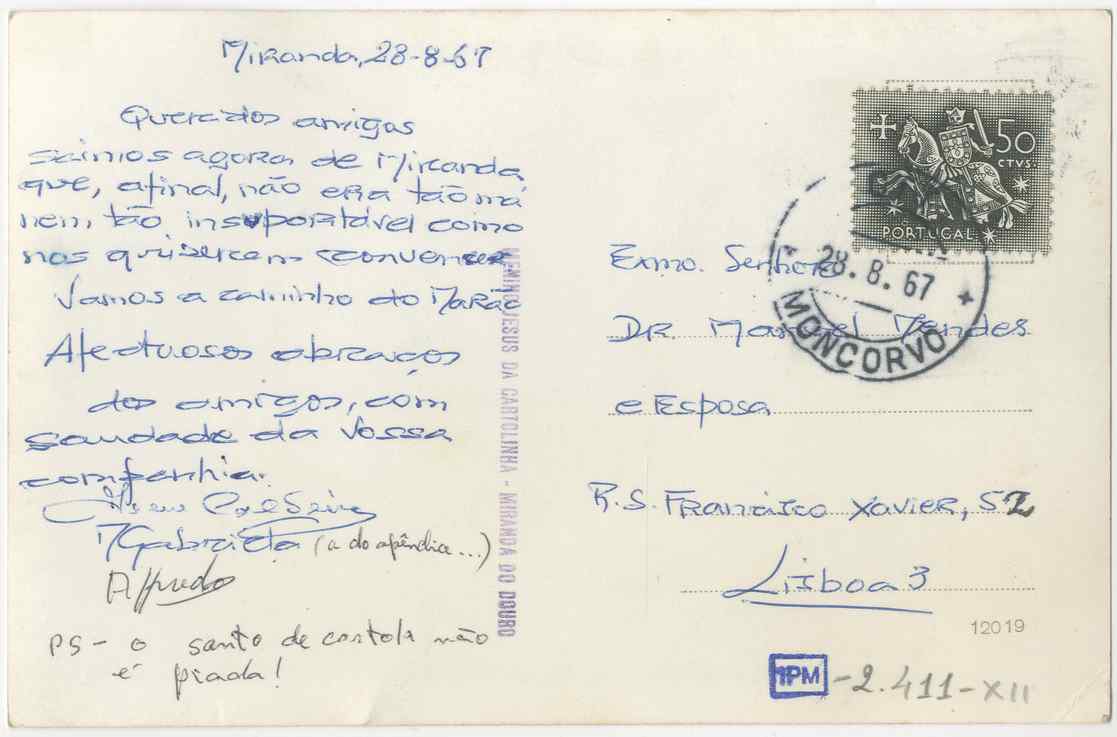 Miranda, 28-8-67
Queridos amigos
saímos agora de Miranda
que, afinal, não era tão má
nem tão insuportável como
nos quizeram convencer
Vamos a caminho do Marão
Afectuosos abraços
dos amigos, com
saudade da vossa
companhia.
M Gabriela (a do apêndice...)
Alfredo
PS - o santo de cartola não
é piada!
MENINO JESUS DA CARTOLINHA - MIRANDA DO DOURO
50
CTVS.
PORTUGAL
28.8.67
MONCORVO
Exmo. Senhor
DR. Manuel Mendes
e Esposa
R. S. Francisco Xavier, 52
Lisboa 3
12019
IPM -2.411-XII